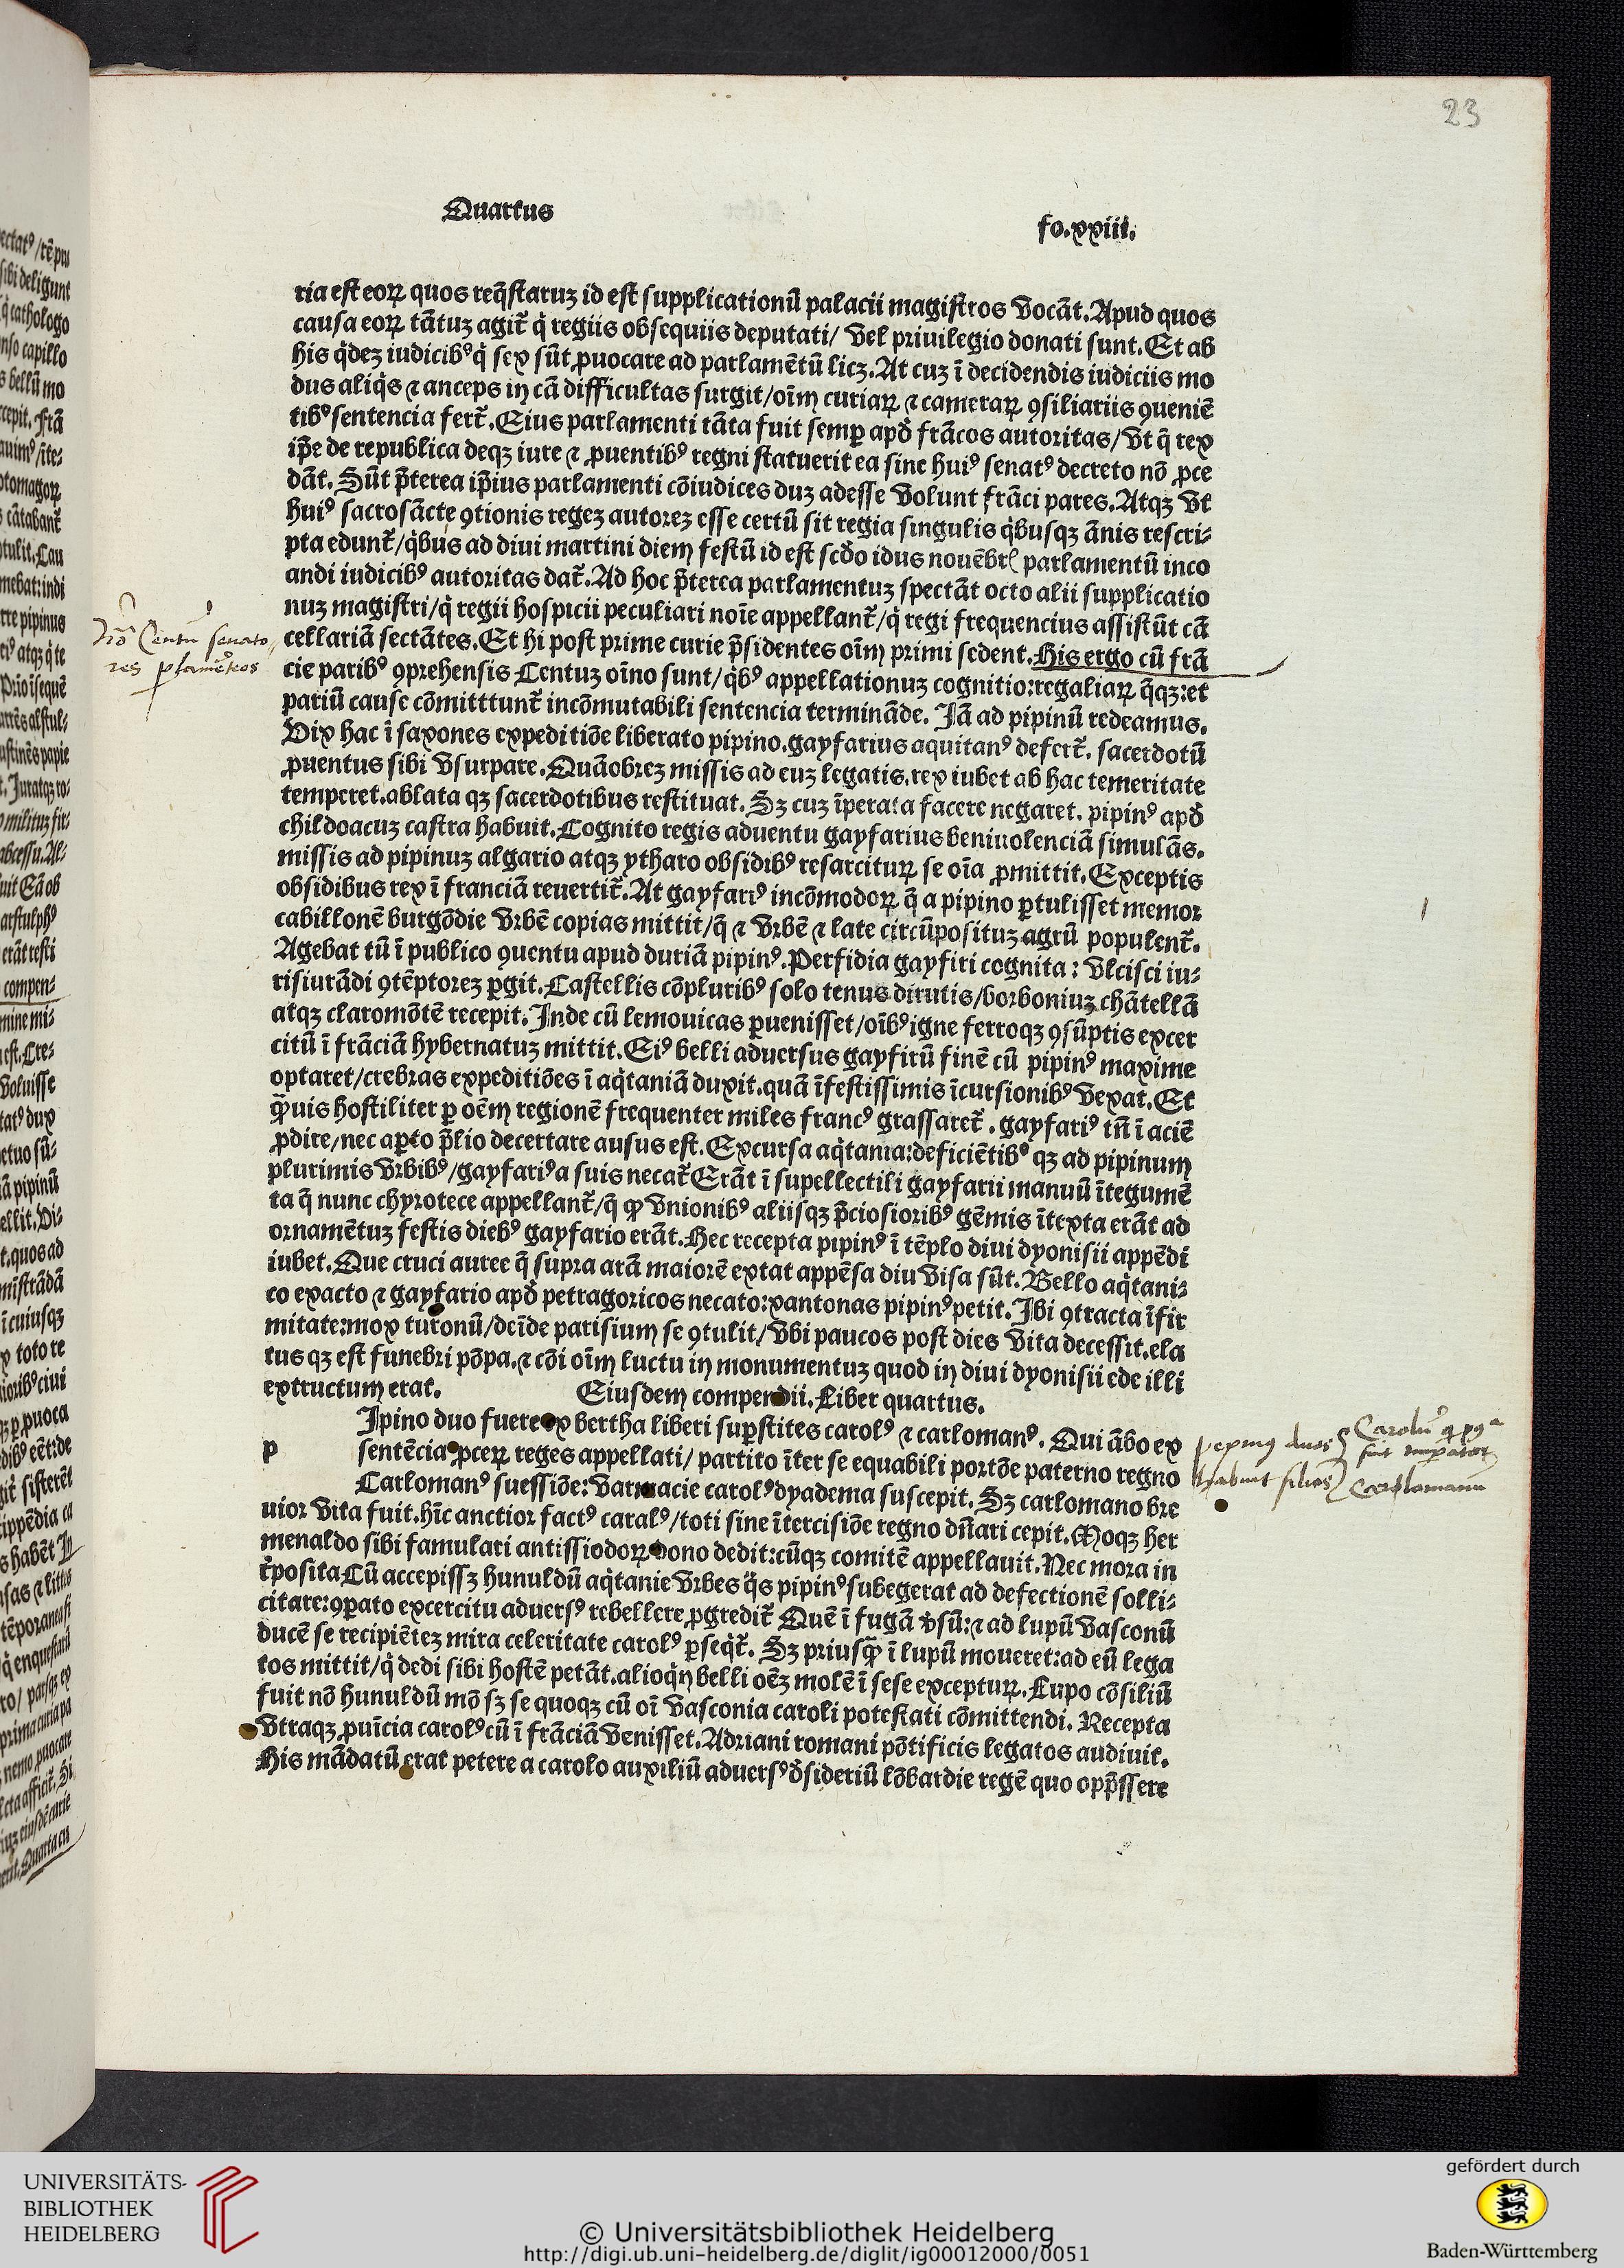 23
Quartus
fo.xxiii.
ria est eoꝝ quos req̄staruꝫ id est supplicationū palacii magistros vocāt. Apud quos
causa eoꝝ tātuꝫ agit᷑ q̇ regiis obsequiis deputati/ vel priuilegio donati sunt. Et ab
his q̇deꝫ iudicibꝰ q̇ sex sūt ꝓuocare ad parlamētū licꝫ. At cuꝫ ī decidendis iudiciis mo
dus aliq̇s ⁊ anceps in cā difficultas surgit/ oīm curiaꝝ ⁊ cameraꝝ ꝯsiliariis ꝯueniē
tibꝰ sentencia fert᷑. Eius parlamenti tāta fuit semꝑ apď frācos autoritas/ vt q̄ rex
ip̄e de republica deqꝫ iure ⁊ ꝓuentibꝰ regni statuerit ea sine huiꝰ senatꝰ decreto nō ꝓce
dāt. Sūt p̄terea ip̄ius parlamenti cōiudices duꝫ adesse volunt frāci pares. Atqꝫ vt
huiꝰ sacrosācte ꝯtionis regeꝫ autoreꝫ esse certū sit regia singulis q̇busqꝫ ānis rescri⸗
pta edunt᷑/ q̇bus ad diui martini diem festū id est scďo idus nouēbrꝭ parlamentū inco
andi iudicibꝰ autoritas dat᷑. Ad hoc p̄terea parlamentuꝫ spectāt octo alii supplicatio
nuꝫ magistri/ q̇ regii hospicii peculiari noīe appellant᷑/ q̇ regi frequencius assistūt cā
cellariā sectātes. Et hi post prime curie p̄sidentes oīm primi sedent. His ergo cū frā
cie paribꝰ ꝯprehensis Centuꝫ oīno sunt/ q̇bꝰ appellationuꝫ cognitio: regaliaꝝ q̄qꝫ: et
pariū cause cōmitttunt᷑ incōmutabili sentencia termināde. Jā ad pipinū redeamus.
Vix hac ī saxones expeditiōe liberato pipino. gayfarius aquitanꝰ defert᷑. sacerdotū
ꝓuentus sibi vsurpare. Quāobreꝫ missis ad euꝫ legatis. rex iubet ab hac temeritate
temperet. ablata qꝫ sacerdotibus restituat. Sꝫ cuꝫ īperata facere negaret. pipinꝰ apď
childoacuꝫ castra habuit. Cognito regis aduentu gayfarius beniuolenciā simulās.
missis ad pipinuꝫ algario atqꝫ ytharo obsidibꝰ resarcituꝝ se oīa ꝓmittit. Exceptis
obsidibus rex ī franciā reuertit᷑. At gayfariꝰ incōmodoꝝ q̄ a pipino ꝑtulisset memor
cabillonē burgōdie vrbē copias mittit/ q̄ ⁊ vrbē ⁊ late circūposituꝫ agrū populent᷑.
Agebat tū ī publico ꝯuentu apud duriā pipinꝰ. Perfidia gayfiri cognita: vlcisci iu⸗
risiurādi ꝯtēptoreꝫ ꝑgit. Castellis cōpluribꝰ solo tenus dirutis/ borboniuꝫ chātellā
atqꝫ claromōtē recepit. Inde cū lemouicas ꝑuenisset/ oībꝰ igne ferroqꝫ ꝯsūptis excer
citū ī frāciā hybernatuꝫ mittit. Eiꝰ belli aduersus gayfirū finē cū pipinꝰ maxime
optaret/ crebras expeditiōes ī aq̇taniā duxit. quā īfestissimis īcursionibꝰ vexat. Et
ꝙ̄uis hostiliter ꝑ oēm regionē frequenter miles francꝰ grassaret᷑. gayfariꝰ tn̄ ī aciē
ꝓdire/ nec aꝑto p̄lio decertare ausus est. Excursa aq̇tania: deficiētibꝰ qꝫ ad pipinum
plurimis vrbibꝰ/ gayfariꝰ a suis necat᷑ Erāt ī supellectili gayfarii manuū ītegumē
ta q̄ nunc chyrotece appellant᷑/ q̄ ꝙ vnionibꝰ aliisqꝫ p̄ciosioribꝰ gēmis ītexta erāt ad
ornamētuꝫ festis diebꝰ gayfario erāt. Hec recepta pipinꝰ ī tēplo diui dyonisii appēdi
iubet. Que cruci auree q̄ supra arā maiorē extat appēsa diu visa sūt. Bello aq̇tani⸗
co exacto ⁊ gayfario apď petragoricos necato: xantonas pipinꝰ petit. Ibi ꝯtracta īfir
mitate: mox turonū/ deīde parisium se ꝯtulit/ vbi paucos post dies vita decessit. ela
tus qꝫ est funebri pōpa. ⁊ cōi oīm luctu in monumentuꝫ quod in diui dyonisii ede illi
extructum erat. Eiusdem compendii. Liber quartus.
Ipino duo fuere ex bertha liberi suꝑstites carolꝰ ⁊ carlomanꝰ. Qui ābo ex
p sentēcia ꝓceꝝ reges appellati/ partito īter se equabili portōe paterno regno
Carlomanꝰ suessiōe: varmacie carolꝰ dyadema suscepit. Sꝫ carlomano bre
uior vita fuit. hīc anctior factꝰ caralꝰ/ toti sine ītercisiōe regno dn̄ari cepit. Moqꝫ her
menaldo sibi famulari antissiodoꝝ dono dedit: cūqꝫ comitē appellauit. Nec mora in
t᷑posita Cū accepissꝫ hunuldū aq̇tanie vrbes q̇s pipinꝰ subegerat ad defectionē solli⸗
citare: ꝯꝑato excercitu aduersꝰ rebellere ꝓgredit᷑ Quē ī fugā v̓sū: ⁊ ad lupū vasconū
ducē se recipiēteꝫ mira celeritate carolꝰ ꝑseq̇t᷑. Sꝫ priusꝙ̄ ī lupū moueret: ad eū lega
tos mittit/ q̇ dedi sibi hostē petāt. alioq̇n belli oēꝫ molē ī sese exceptuꝝ. Lupo cōsiliū
fuit nō hunuldū mō sꝫ se quoqꝫ cū oī vasconia caroli potestati cōmittendi. Recepta
vtraqꝫ ꝓuīcia carolꝰ cū ī frāciā venisset. Adriani romani pōtificis legatos audiuit.
His mādatū erat petere a carolo auxiliū aduersꝰ ďsideriū lōbardie regē quo opp̄ssere
Centū senato
res
duos
fuit
filios
UNIVERSITÄTS-
BIBLIOTHEK
HEIDELBERG
© Universitätsbibliothek Heidelberg
http://digi.ub.uni-heidelberg.de/diglit/ig00012000/0051
gefördert durch
Baden-Württemberg